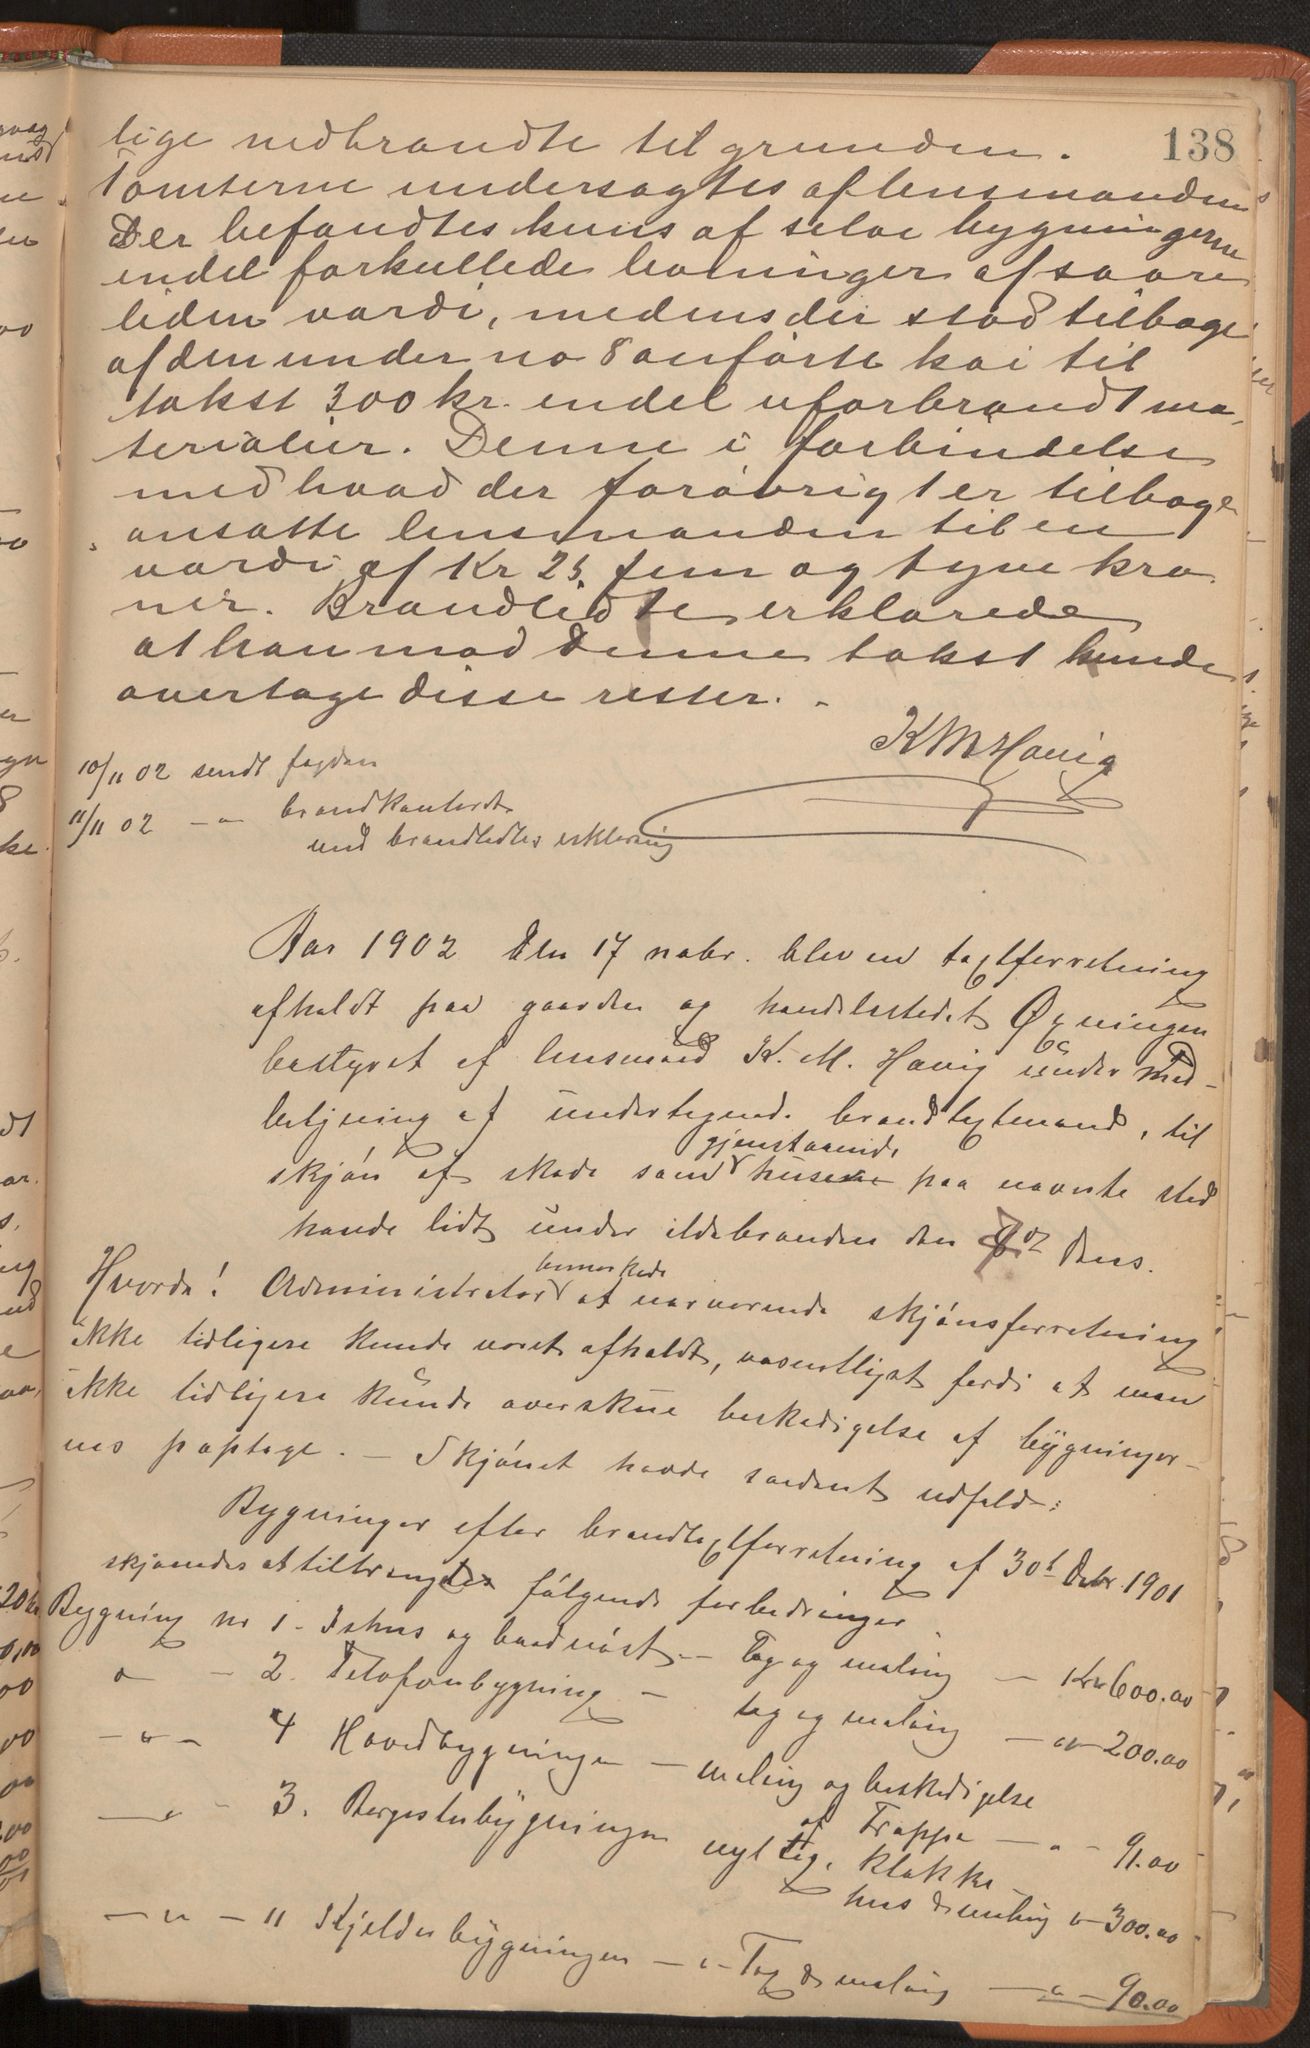 138
lige nedbrandte til grunden.
Tomterne undersøgtes af lensmanden
Der befandtes kuns af selve bygningerne
endel forkullede levninger af saare
liden værdi, medens der stod tilbage
af den under no 8 anførte kai til
takst 300 kr. endel uforbrændt ma-
terialier. Denne i forbindelse
med hvad der forøvrigt er tilbage
ansatte lensmanden til en
værdi af Kr 25. fem og tyve kro
ner. Brandlidte erklærede
at han mod denne takst kunde
overtage disse rester.
K M Havig
10/11 02 sendt fogden
11/11 02 - " - brandkontoret
med brandlidtes erklæring
Aar 1902 den 17 nobr. blev en taxtforretning
afholdt paa gaarden og handelsstedet Øyningen
bestyret af lensmand K. M. Havig under med-
betjening af undertegnede brandtaxtmænd, til
skjøn af skade som gjenstaaende husene paa nævnte sted
havde lidt under ildebranden den dens.
Hvorda! Administrator bemærkede at nærværende skjønsforretning
ikke tidligere kunde været afholdt, væsentligst fordi at man
ikke tidligere kunde overskue beskadigelse af bygninger-
nes paptage. - Skjønet havde saadant udfald:
Bygninger efter brandtaxtforretning af 30t Debr 1901
skjønnedes at tiltrænges følgende forbedringer
Bygning nr 1 - Ishus og baadnøst - Tag og maling - Kr 600.00
" - 2. Telefonbygning - tag og maling - " - 200.00
- " - 4 Hovedbygningen - maling og beskadigelse
af Trappe - " - 91.00
- " - 3. Bergestubygningen nyt tag, klokke-
hus & maling " - 300.00
- " - 11 Kjelderbygningen - " - Tag & maling - " - 90.00